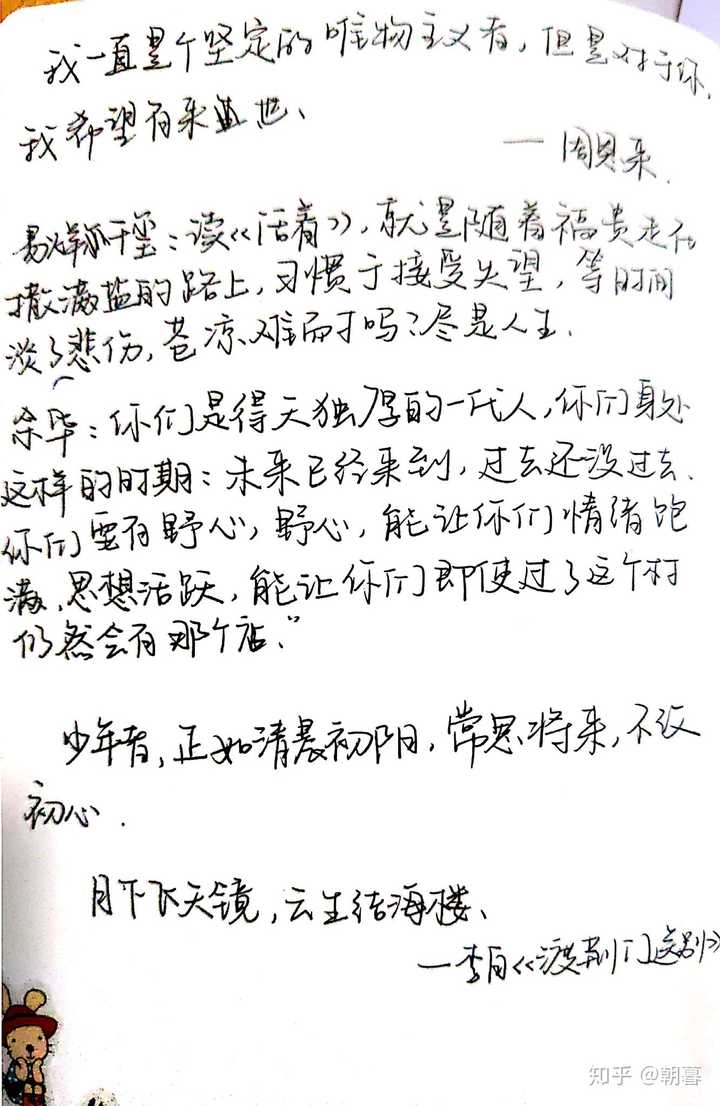 我一直是个坚定的唯物主义者，但是对于你，
我希望有来世、
——周恩来.
易烊千玺：读《活着》，就是随着福贵走在
撒满盐的路上，习惯于接受失望，等时间
淡了悲伤，苍凉难耐吗？尽是人生.
余华：你们是得天独厚的一代人，你们身处
这样的时期：未来已经来到，过去还没过去、
你们要有野心，野心，能让你们情绪饱
满、思想活跃，能让你们即使过了这个村
仍然会有那个店、”
少年者，正如清晨初阳，常思将来，不改
初心.
月下飞天镜，云生结海楼、
—李白《渡荆门送别》
知乎 @朝暮